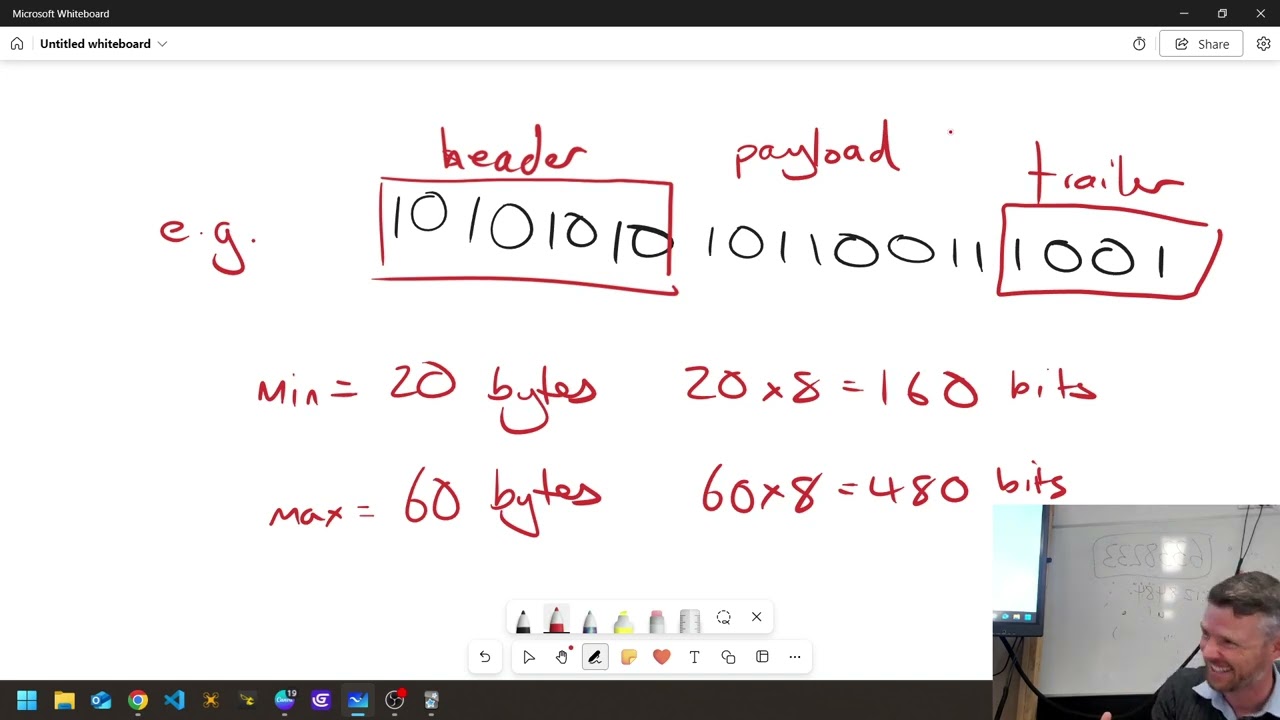 Microsoft Whiteboard
Untitled whiteboard
Share
header payload trailer
e.g. 10101010 10110011 1001
Min = 20 bytes 20 x 8 = 160 bits
max = 60 bytes 60 x 8 = 480 bits
T
19